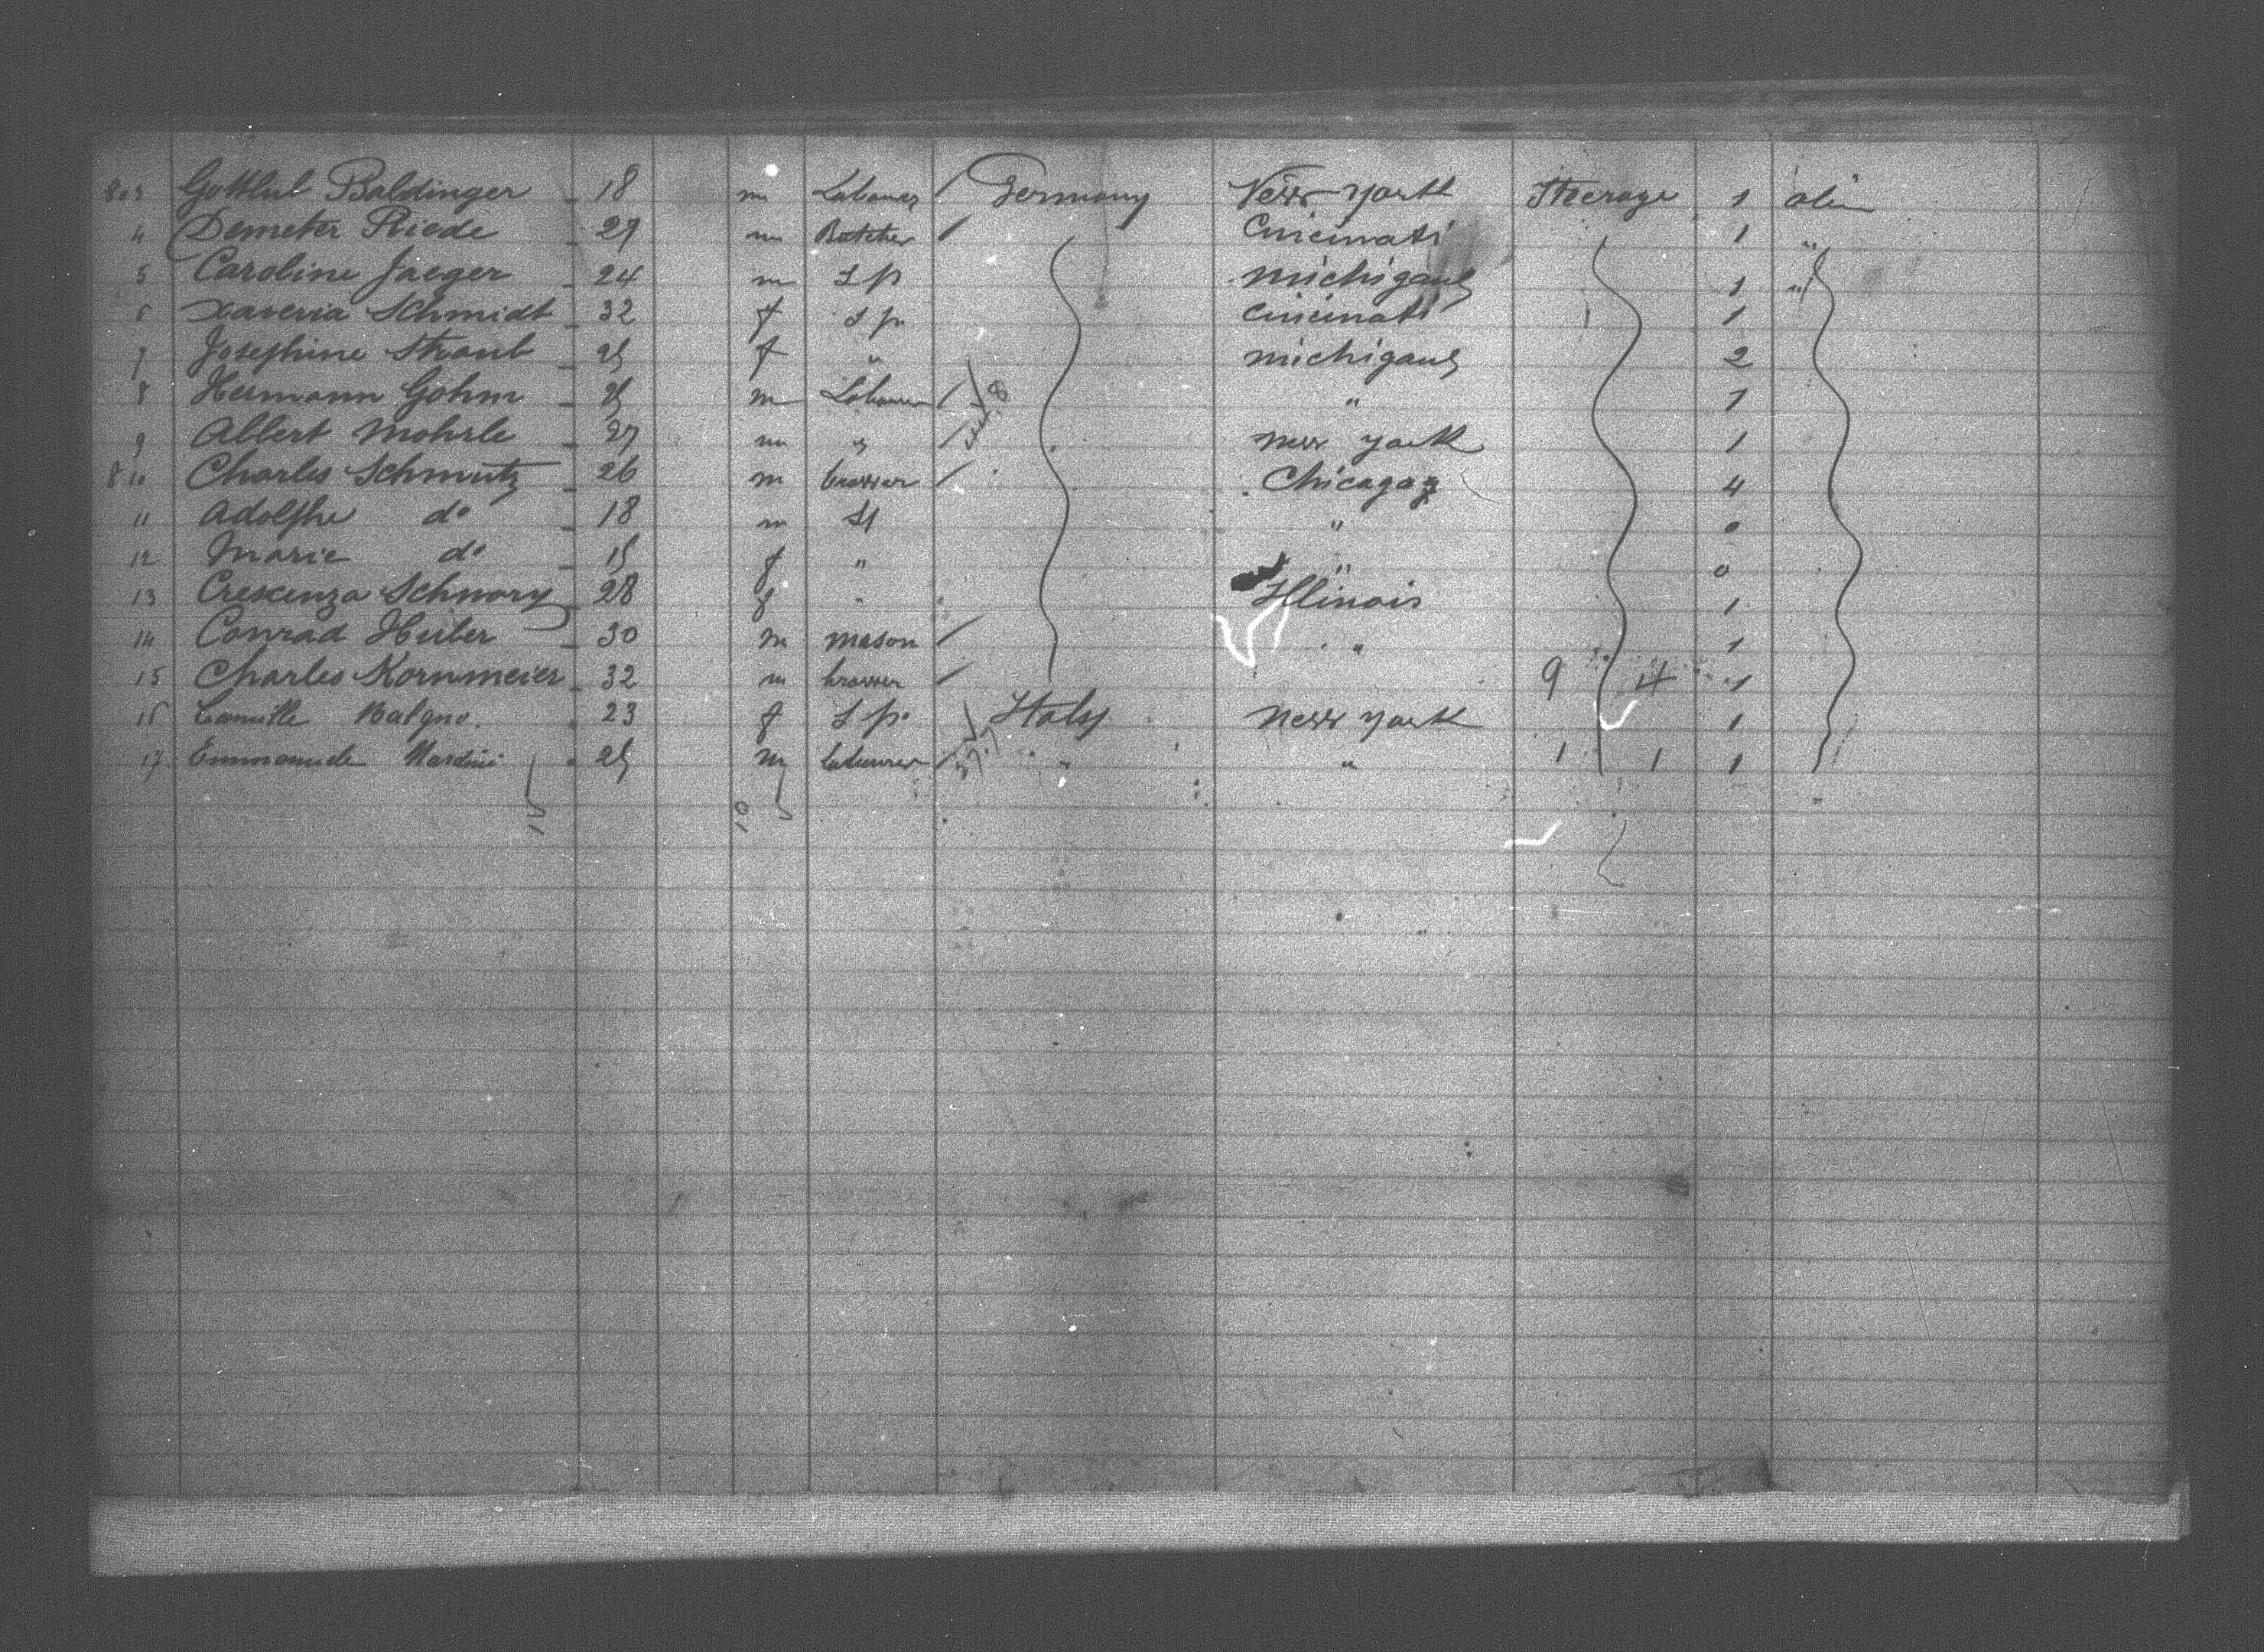 803 Gottlub Baldinger 18 m Labourer / Germany New York Steerage 1 alien
4 Demeter Riede 27 m Butcher / Cincinati 1 "
5 Caroline Jaeger 24 m Sp michigang 1 "
6 Xaveria Schmidt 32 f Sp Cincinati 1
7 Josephine Straub 25 f " michigang 2
8 Hermann Gohm 25 m Labourer / " 1
9 Albert Mohrle 27 m " / New York 1
810 Charles Schmutz 26 m brower / Chicago 4
11 Adolphe do 18 m Sp " 0
12 Marie do 15 f " " 0
13 Crescenza Schnory 28 f " Illinois 1
14 Conrad Huber 30 m mason / " 1
15 Charles Kornmeier 32 m brower / 9 4 1
16 Camille 23 f Sp Italy New York 1
17 Emmanuele Nardini 25 m Labourer / " " 1 1 1